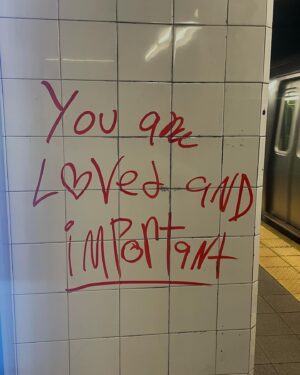 You are
LOVed aND
iMPORtaNt